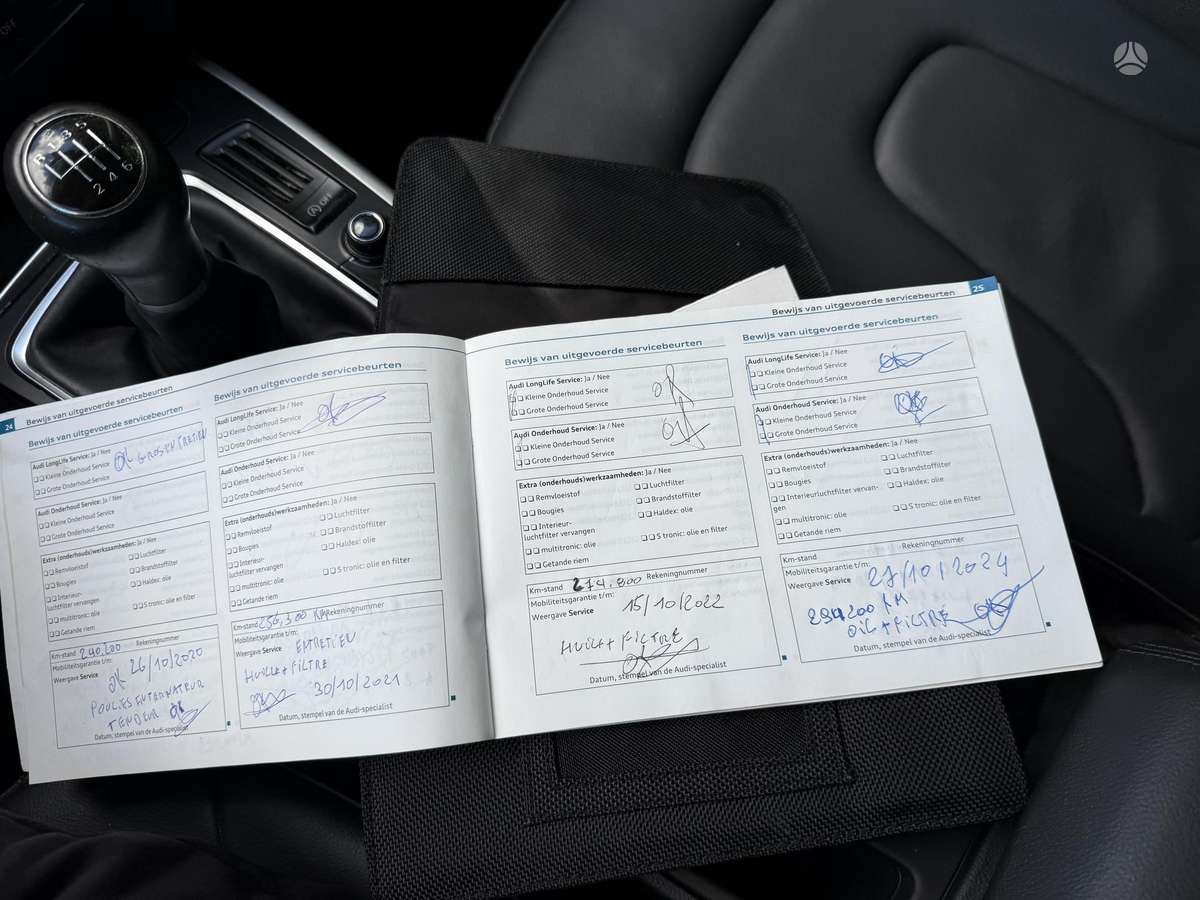 OFF
R 1 3 5
2 4 6
A OFF
24
Bewijs van uitgevoerde servicebeurten
Bewijs van uitgevoerde servicebeurten
Audi LongLife Service: Ja / Nee
Kleine Onderhoud Service
Grote Onderhoud Service
OK GROS ENTRETIEN
Audi Onderhoud Service: Ja / Nee
Kleine Onderhoud Service
Grote Onderhoud Service
Extra (onderhouds)werkzaamheden: Ja / Nee
Remvloeistof
Luchtfilter
Bougies
Brandstoffilter
Interieur-
luchtfilter vervangen
Haldex: olie
multitronic: olie
S tronic: olie en filter
Getande riem
Km-stand 240.200 Rekeningnummer
Mobiliteitsgarantie t/m:
Weergave Service OK 26/10/2020
POULIES INTERNATEUR
TENDEUR OK
Datum, stempel van de Audi-specialist
Bewijs van uitgevoerde servicebeurten
Audi LongLife Service: Ja / Nee
Kleine Onderhoud Service
Grote Onderhoud Service
Audi Onderhoud Service: Ja / Nee
Kleine Onderhoud Service
Grote Onderhoud Service
Extra (onderhouds)werkzaamheden: Ja / Nee
Remvloeistof
Luchtfilter
Bougies
Brandstoffilter
Interieur-
luchtfilter vervangen
Haldex: olie
multitronic: olie
S tronic: olie en filter
Getande riem
Km-stand 256,300 KM Rekeningnummer
Mobiliteitsgarantie t/m:
Weergave Service ENTRETIEN
HUILE + FILTRE
30/10/2021
Datum, stempel van de Audi-specialist
Bewijs van uitgevoerde servicebeurten
Audi LongLife Service: Ja / Nee
Kleine Onderhoud Service
Grote Onderhoud Service
OK
Audi Onderhoud Service: Ja / Nee
Kleine Onderhoud Service
Grote Onderhoud Service
OK
Extra (onderhouds)werkzaamheden: Ja / Nee
Remvloeistof
Luchtfilter
Bougies
Brandstoffilter
Interieur-
luchtfilter vervangen
Haldex: olie
multitronic: olie
S tronic: olie en filter
Getande riem
Km-stand 274.800 Rekeningnummer
Mobiliteitsgarantie t/m:
Weergave Service 15/10/2022
HUILE + FILTRE
OK
Datum, stempel van de Audi-specialist
Bewijs van uitgevoerde servicebeurten
25
Bewijs van uitgevoerde servicebeurten
Audi LongLife Service: Ja / Nee
Kleine Onderhoud Service
Grote Onderhoud Service
Audi Onderhoud Service: Ja / Nee
Kleine Onderhoud Service
Grote Onderhoud Service
Extra (onderhouds)werkzaamheden: Ja / Nee
Remvloeistof
Luchtfilter
Bougies
Brandstoffilter
Interieurluchtfilter vervan-
gen
Haldex: olie
multitronic: olie
S tronic: olie en filter
Getande riem
Km-stand
Rekeningnummer
Mobiliteitsgarantie t/m:
Weergave Service 27/10/2024
294200 KM
OIL + FILTRE
Datum, stempel van de Audi-specialist